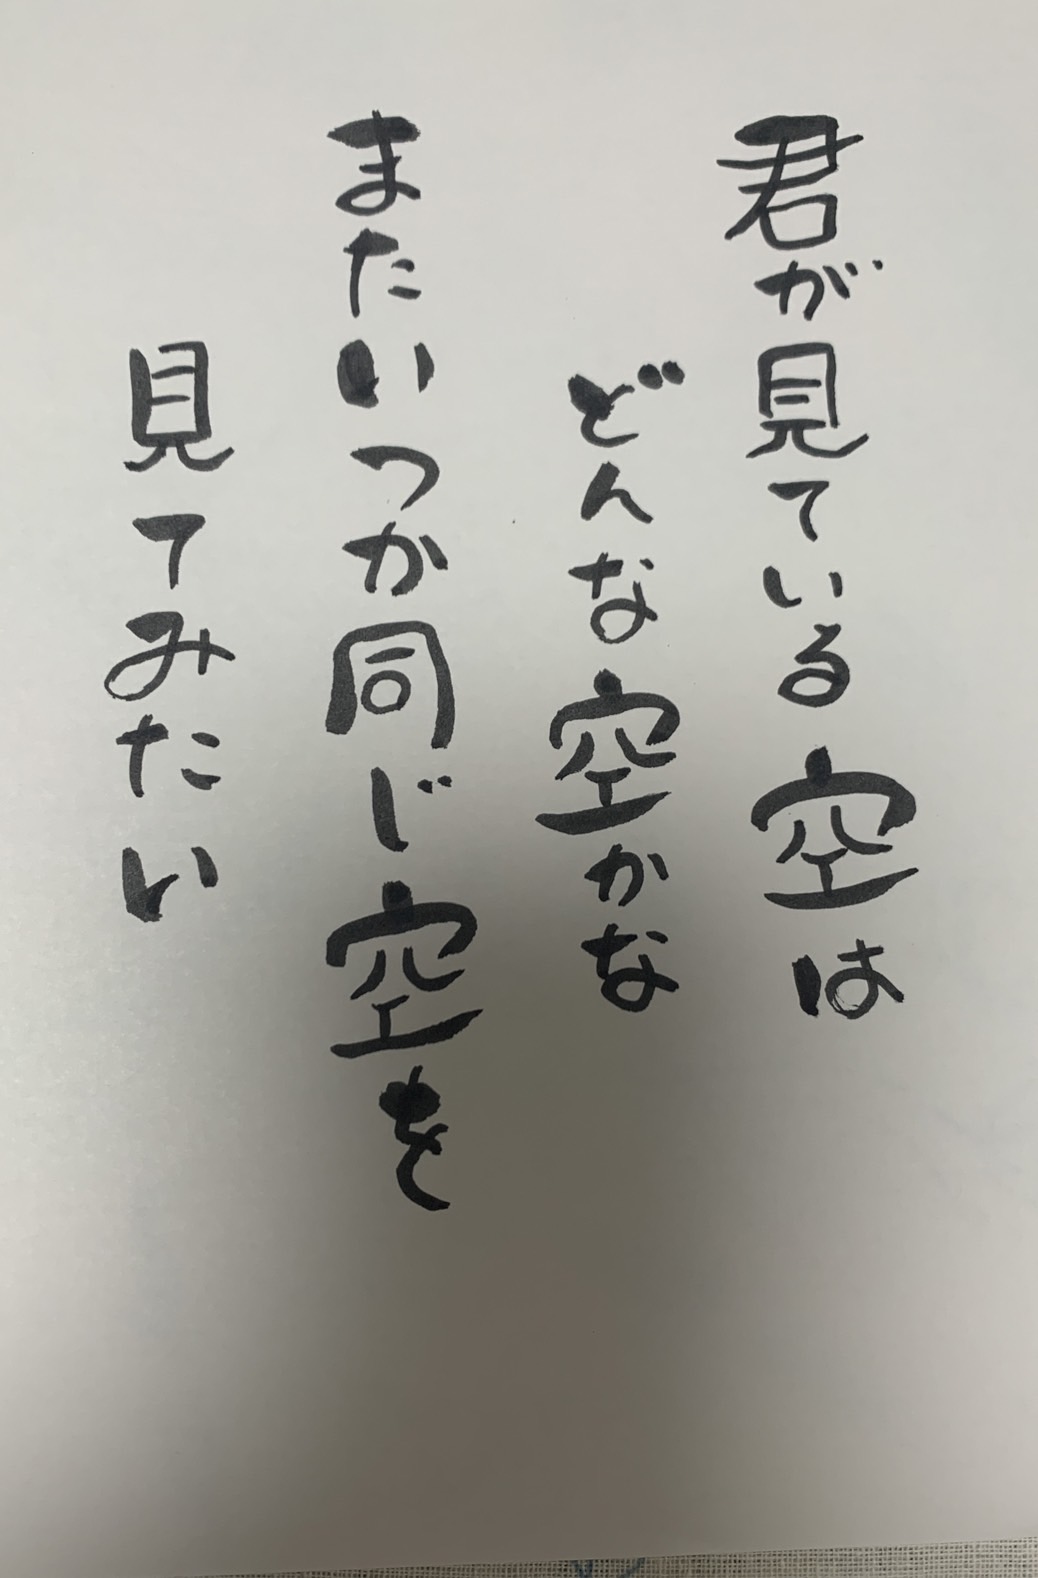 君が見ている空は
どんな空かな
またいつか同じ空を
見てみたい